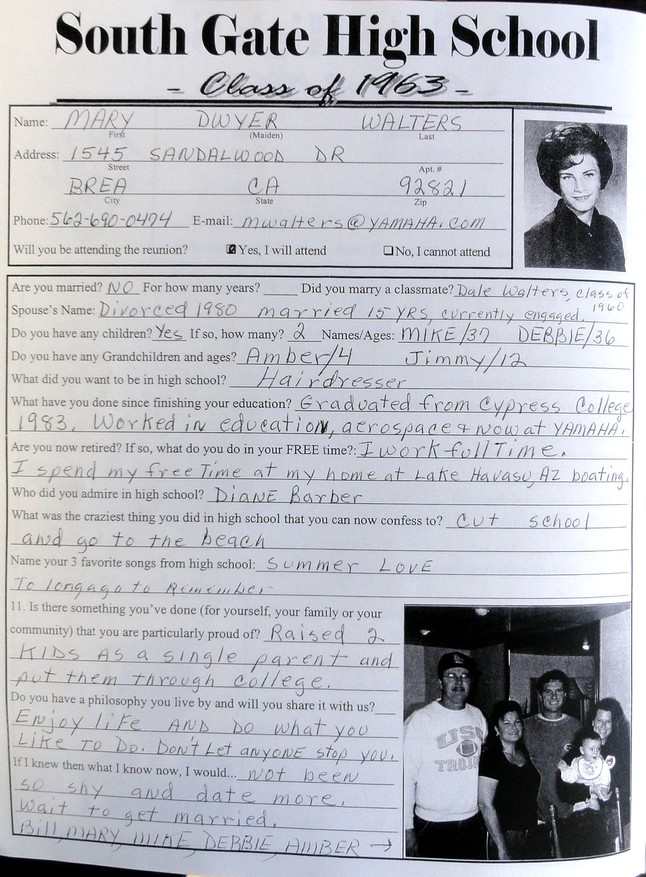 South Gate High School
- Class of 1963 -
Name: MARY DWYER WALTERS
First (Maiden) Last
Address: 1545 SANDALWOOD DR
Street Apt. #
BREA CA 92821
City State Zip
Phone: 562-690-0474 E-mail: mwalters@YAMAHA.com
Will you be attending the reunion? ☑Yes, I will attend ☐No, I cannot attend
Are you married? NO For how many years? ____ Did you marry a classmate? Dale Walters, class of
1960
Spouse's Name: Divorced 1980 married 15 YRS, currently engaged.
Do you have any children? Yes If so, how many? 2 Names/Ages: MIKE/37 DEBBIE/36
Do you have any Grandchildren and ages? Amber/4 Jimmy/12
What did you want to be in high school? Hairdresser
What have you done since finishing your education? Graduated from Cypress College
1983. Worked in education, aerospace & now at YAMAHA.
Are you now retired? If so, what do you do in your FREE time?: I work full Time.
I spend my free Time at my home at Lake Havasu, AZ boating.
Who did you admire in high school? DIANE Barber
What was the craziest thing you did in high school that you can now confess to? cut school
and go to the beach
Name your 3 favorite songs from high school: Summer LOVE
To long ago to Remember
11. Is there something you've done (for yourself, your family or your
community) that you are particularly proud of? Raised 2
KIDS AS a single parent and
put them through college.
Do you have a philosophy you live by and will you share it with us?
Enjoy life AND DO what you
Like TO DO. Don't Let anyone stop you.
If I knew then what I know now, I would... not been
so shy and date more.
wait to get married.
Bill, MARY, MIKE, DEBBIE, AMBER →
USC
TROJANS